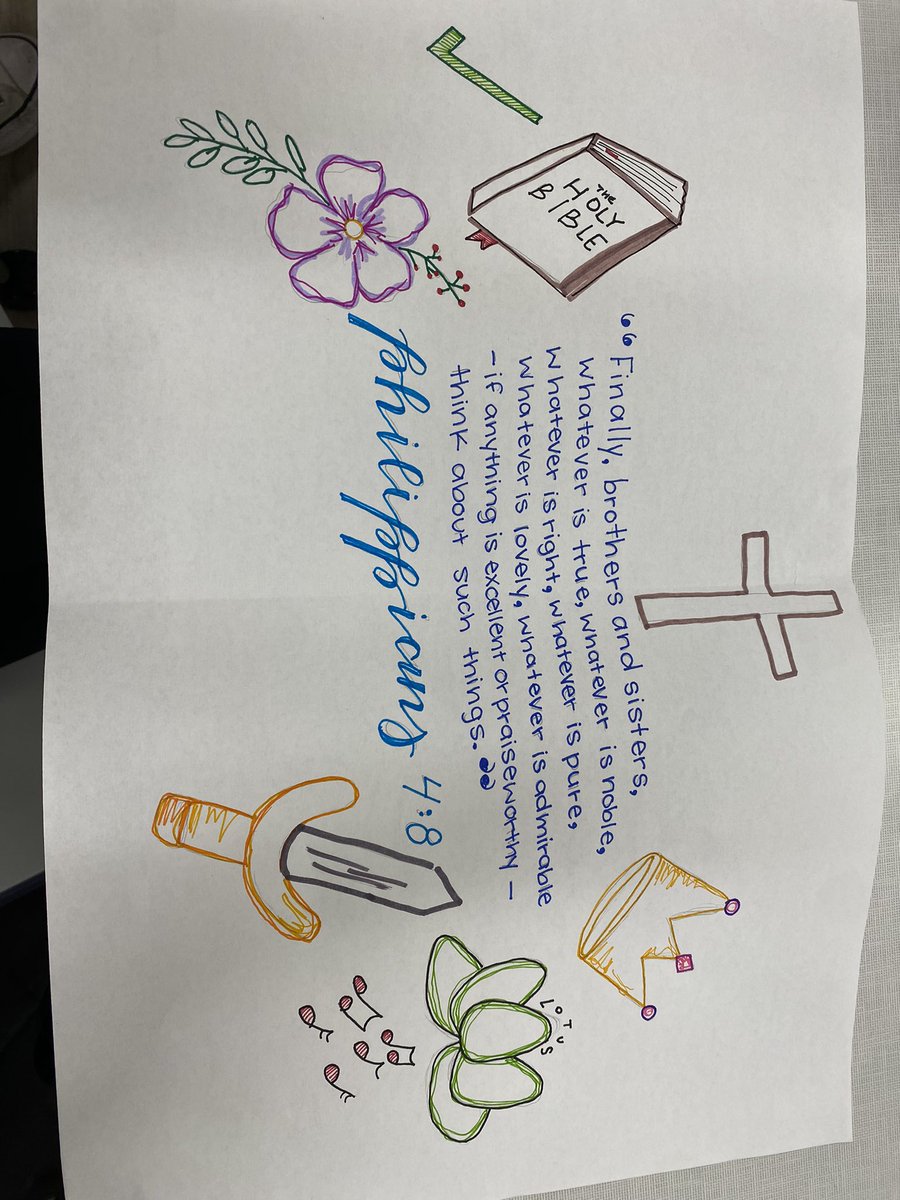 THE
HOLY
BIBLE
“Finally, brothers and sisters,
whatever is true, whatever is noble,
whatever is right, whatever is pure,
whatever is lovely, whatever is admirable
– if anything is excellent or praiseworthy –
think about such things.”
philippians 4:8
LOTUS